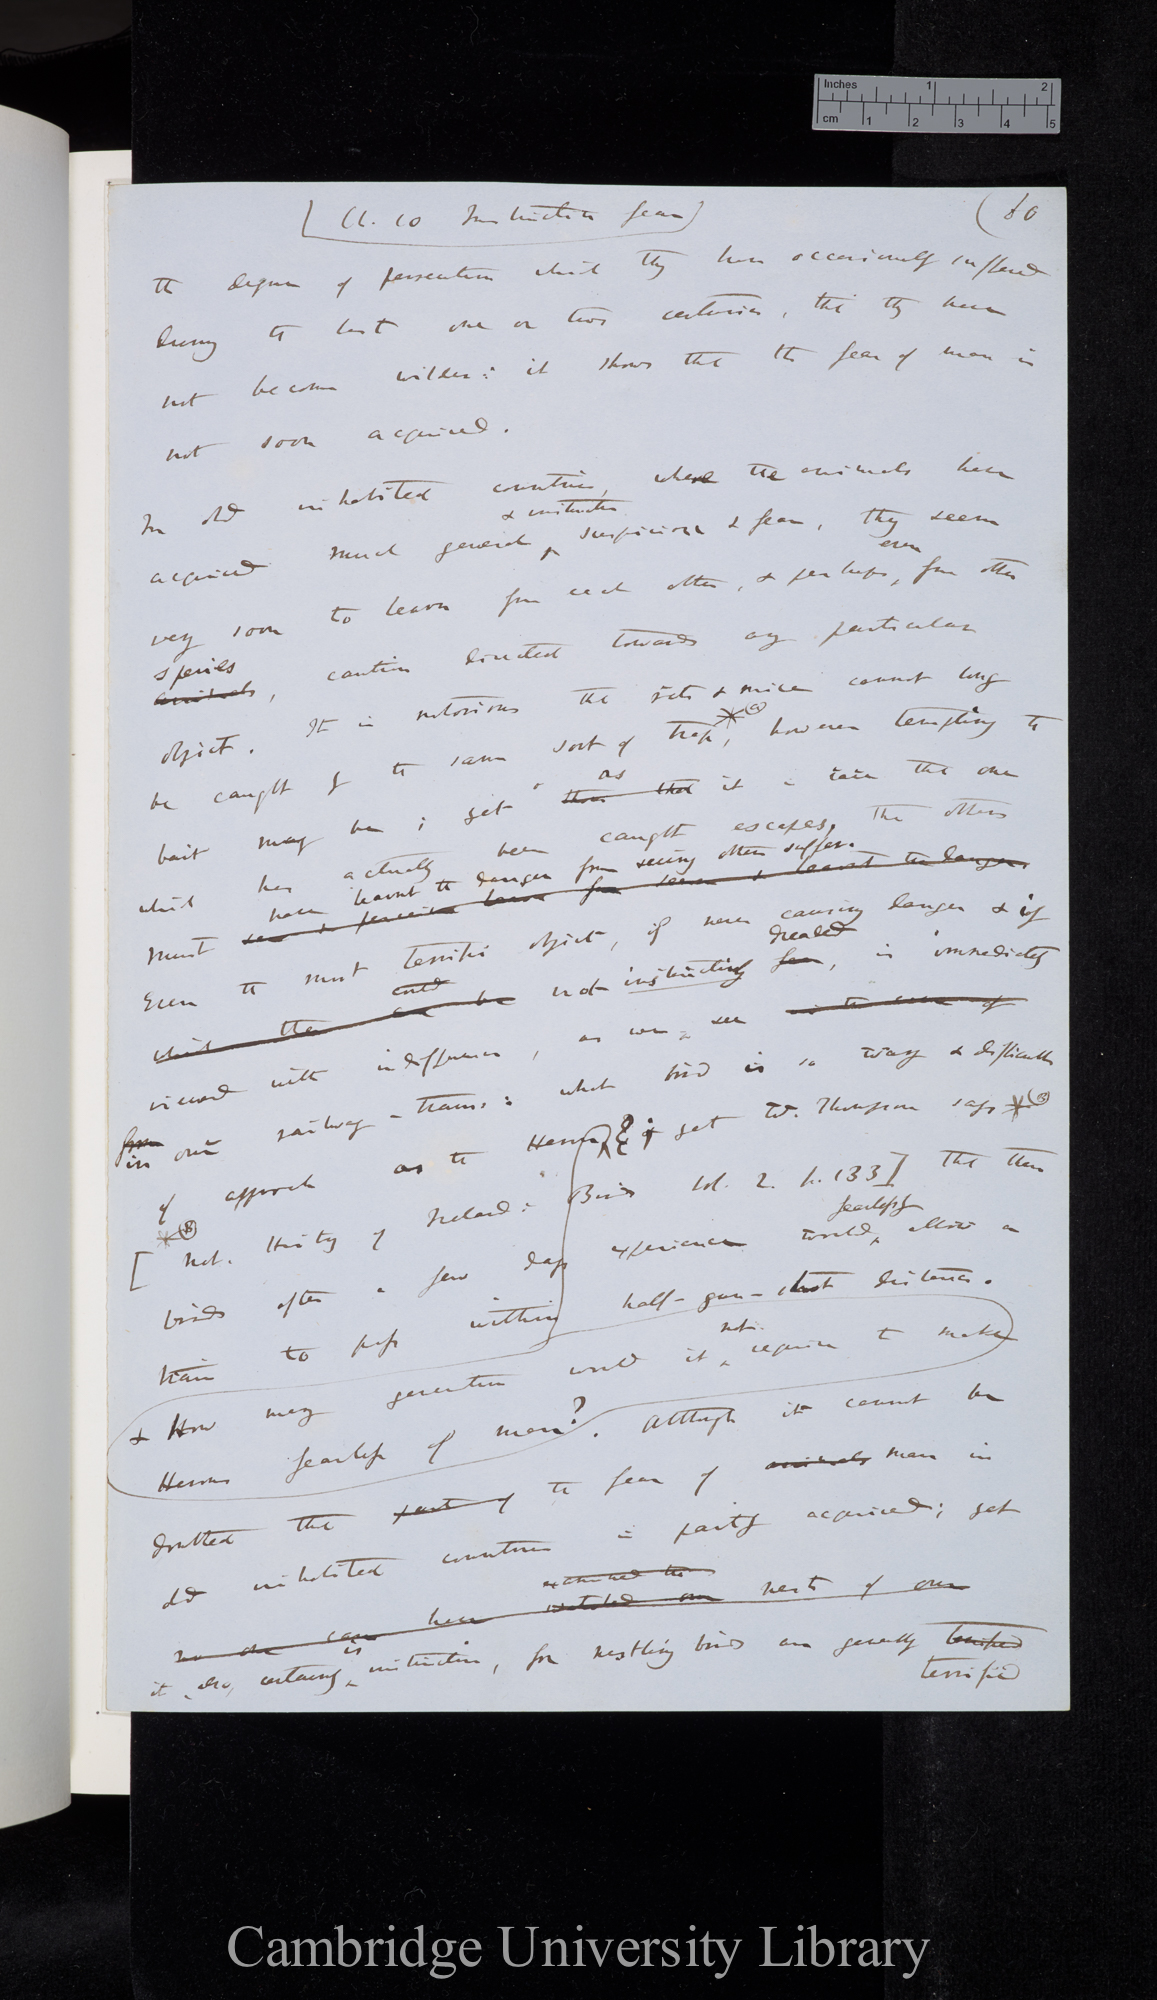 Inches 1 2
cm 1 2 3 4 5
[Ch. 10 Instinctive fear] (60
the degree of persecution which they have occasionally suffered
during the last one or two centuries, that they have
not become wilder: it shows that the fear of man is
not soon acquired.
In old inhabited countries, where the animals have
& instinctive
acquired much general suspicion & fear, they seem
even
very soon to learn from each other, & perhaps, from other
species
animals, caution directed towards any particular
object. It is notorious that rats & mice cannot long
be caught by the same sort of trap, however tempting the
bait may be; yet as it is rare that one
which has actually been caught escapes, the others
have learnt the danger from seeing others suffer.
must
Even the most terrific object, if never causing danger & if
dreaded
not instinctively fear, is immediately
viewed with indifference, as we see
in our railway-trains: what bird is so wary & difficult
of approach as the Heron & yet W. Thompson says
[Nat. History of Ireland: Birds vol. 2. p. 133] that these
fearlessly
birds after a few days experience would, allow a
train to pass within half-gun-shot distance.
not
& How many generation would it require to make
Herons fearless of man? Although it cannot be
doubted that part of the fear of animals man in
old inhabited countries is partly acquired; yet
examined the
no one can have watched our nests of our
is
it also, certainly instinctive, for nestling birds are generally terrified
terrified
Cambridge University Library